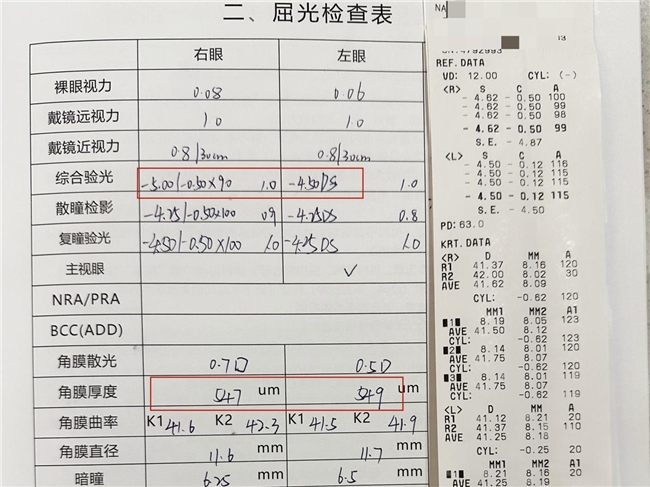 二、屈光检查表
右眼 左眼
裸眼视力 0.08 0.06
戴镜远视力 1.0 1.0
戴镜近视力 0.8/30cm 0.8/30cm
综合验光 -5.00/-0.50×90 1.0 -4.50DS 1.0
散瞳检影 -4.75/-0.50×100 0.9 -4.75DS 0.8
复瞳验光 -4.50/-0.50×100 1.0 -4.25DS 1.0
主视眼 ✓
NRA/PRA
BCC(ADD)
角膜散光 0.7D 0.5D
角膜厚度 547 um 549 um
角膜曲率 K1 41.6 K2 42.3 K1 41.5 K2 41.9
角膜直径 11.6 mm 11.7 mm
暗瞳 6.25 mm 6.5 mm
NA
13
4792993
REF.DATA
VD: 12.00 CYL: (-)
<R> S C A
- 4.62 - 0.50 100
- 4.62 - 0.50 99
- 4.62 - 0.50 98
- 4.62 - 0.50 99
S.E. - 4.87
<L> S C A
- 4.50 - 0.12 116
- 4.50 - 0.12 114
- 4.50 - 0.12 115
- 4.50 - 0.12 115
S.E. - 4.50
PD: 63.0
KRT.DATA
<R> D MM A
R1 41.37 8.16 120
R2 42.00 8.02 30
AVE 41.62 8.09
CYL: -0.62 120
MM1 MM2 A1
1 8.19 8.05 123
AVE 41.50 8.12
CYL: -0.62 123
2 8.14 8.01 120
AVE 41.75 8.07
CYL: -0.62 120
3 8.14 8.01 119
AVE 41.75 8.07
CYL: -0.62 119
<L> D MM A
R1 41.12 8.21 20
R2 41.37 8.15 110
AVE 41.25 8.18
CYL: -0.25 20
MM1 MM2 A1
1 8.21 8.16 20
AVE 41.25 8.19